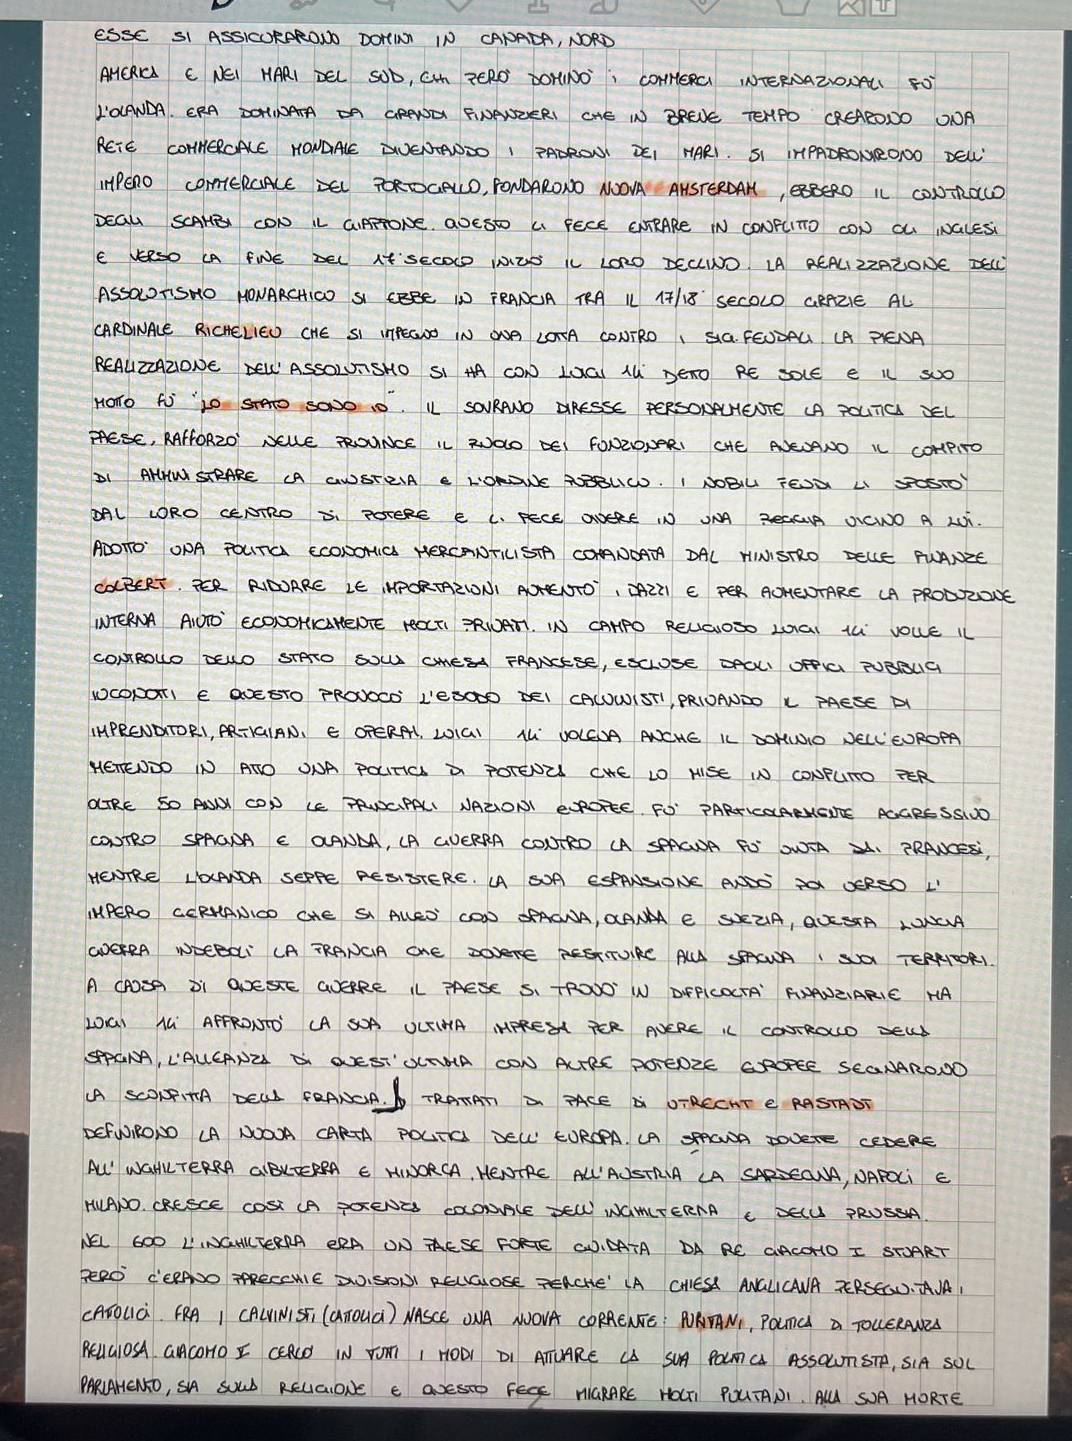 ESSE SI ASSICURARONO DOMINI IN CANADA, NORD
AMERICA E NEI MARI DEL SUD, CHI PERO' DOMINO' I COMMERCI INTERNAZIONALI FU'
L'OLANDA. ERA DOMINATA DA GRANDI FINANZIERI CHE IN BREVE TEMPO CREARONO UNA
RETE COMMERCIALE MONDIALE DIVENTANDO I PADRONI DEI MARI. SI IMPADRONIRONO DELL'
IMPERO COMMERCIALE DEL PORTOGALLO, FONDARONO NUOVA AMSTERDAM, EBBERO IL CONTROLLO
DEGLI SCAMBI CON IL GIAPPONE. QUESTO LI FECE ENTRARE IN CONFLITTO CON GLI INGLESI
E VERSO LA FINE DEL 17° SECOLO INIZIO' IL LORO DECLINO. LA REALIZZAZIONE DELL'
ASSOLUTISMO MONARCHICO SI EBBE IN FRANCIA TRA IL 17/18° SECOLO GRAZIE AL
CARDINALE RICHELIEU CHE SI IMPEGNO IN UNA LOTTA CONTRO I SIG. FEUDALI. LA PIENA
REALIZZAZIONE DELL'ASSOLUTISMO SI HA CON LUIGI 14° DETTO RE SOLE E IL SUO
MOTTO FU' "LO STATO SONO IO". IL SOVRANO DIRESSE PERSONALMENTE LA POLITICA DEL
PAESE, RAFFORZO' NELLE PROVINCE IL RUOLO DEI FUNZIONARI CHE AVEVANO IL COMPITO
DI AMMINISTRARE LA GIUSTIZIA E L'ORDINE PUBBLICO. I NOBILI FEUDI LI SPOSTO'
DAL LORO CENTRO DI POTERE E LI FECE VIVERE IN UNA REGGIA VICINO A LUI.
ADOTTO' UNA POLITICA ECONOMICA MERCANTILISTA COMANDATA DAL MINISTRO DELLE FINANZE
COLBERT. PER RIDURRE LE IMPORTAZIONI AUMENTO' I DAZZI E PER AUMENTARE LA PRODUZIONE
INTERNA AIUTO' ECONOMICAMENTE MOLTI PRIVATI. IN CAMPO RELIGIOSO LUIGI 14° VOLLE IL
CONTROLLO DELLO STATO SULLA CHIESA FRANCESE, ESCLUSE DAGLI UFFICI PUBBLICI
UGONOTTI E QUESTO PROVOCO' L'ESODO DEI CALVINISTI, PRIVANDO IL PAESE DI
IMPRENDITORI, ARTIGIANI E OPERAI. LUIGI 14° VOLEVA ANCHE IL DOMINIO NELL'EUROPA
METTENDO IN ATTO UNA POLITICA DI POTENZA CHE LO MISE IN CONFLITTO PER
OLTRE 50 ANNI CON LE PRINCIPALI NAZIONI EUROPEE. FU' PARTICOLARMENTE AGGRESSIVO
CONTRO SPAGNA E OLANDA, LA GUERRA CONTRO LA SPAGNA FU' VINTA DAI FRANCESI,
MENTRE L'OLANDA SEPPE RESISTERE. LA SUA ESPANSIONE ANDO' POI VERSO L'
IMPERO GERMANICO CHE SI ALLEO' CON SPAGNA, OLANDA E SVEZIA, QUESTA LUNGA
GUERRA INDEBOLI' LA FRANCIA CHE DOVETE RESTITUIRE ALLA SPAGNA I SUOI TERRITORI.
A CAUSA DI QUESTE GUERRE IL PAESE SI TROVO' IN DIFFICOLTA' FINANZIARIE MA
LUIGI 14° AFFRONTO' LA SUA ULTIMA IMPRESA PER AVERE IL CONTROLLO DELLA
SPAGNA, L'ALLEANZA DI QUEST'ULTIMA CON ALTRE POTENZE EUROPEE SEGNARONO
LA SCONFITTA DELLA FRANCIA. I TRATTATI DI PACE DI UTRECHT E RASTADT
DEFINIRONO LA NUOVA CARTA POLITICA DELL'EUROPA. LA SPAGNA DOVETE CEDERE
ALL'INGHILTERRA GIBILTERRA E MINORCA, MENTRE ALL'AUSTRIA LA SARDEGNA, NAPOLI E
MILANO. CRESCE COSI LA POTENZA COLONIALE DELL'INGHILTERRA E DELLA PRUSSIA.
NEL 600 L'INGHILTERRA ERA UN PAESE FORTE GUIDATA DA RE GIACOMO I STUART
PERO' C'ERANO PARECCHIE DIVISIONI RELIGIOSE PERCHE' LA CHIESA ANGLICANA PERSEGUITAVA I
CATOLICI. FRA I CALVINISTI (CATTOLICI) NASCE UNA NUOVA CORRENTE: PURITANI, POLITICA DI TOLLERANZA
RELIGIOSA. GIACOMO I CERCO IN TUTTI I MODI DI ATTUARE LA SUA POLITICA ASSOLUTISTA, SIA SUL
PARLAMENTO, SIA SULLA RELIGIONE E QUESTO FECE MIGRARE MOLTI PULITANI. ALLA SUA MORTE